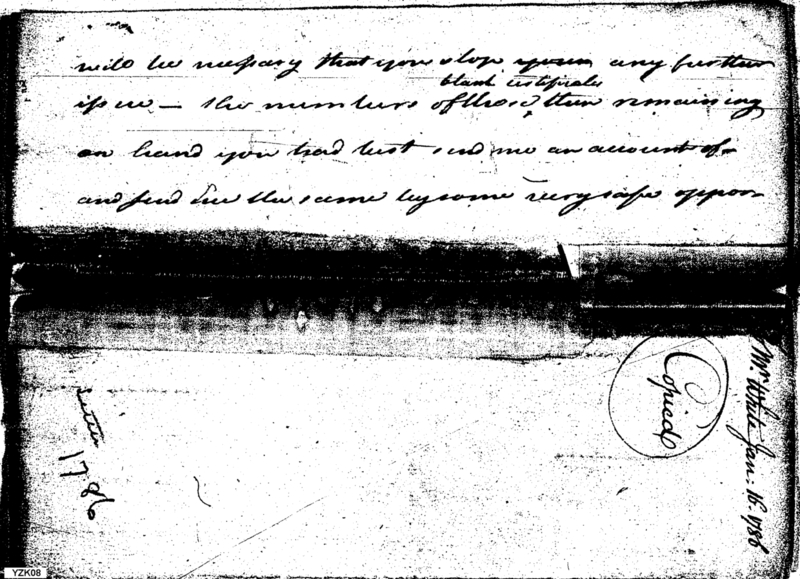 will be necessary that you stop any further
blank certificates
issue — the numbers of those then remaining
on hand you had best send me an account of —
and send me the same by some very safe oppor-
Copied
Mr. White Jan: 16. 1786
Letter
1786
YZK08